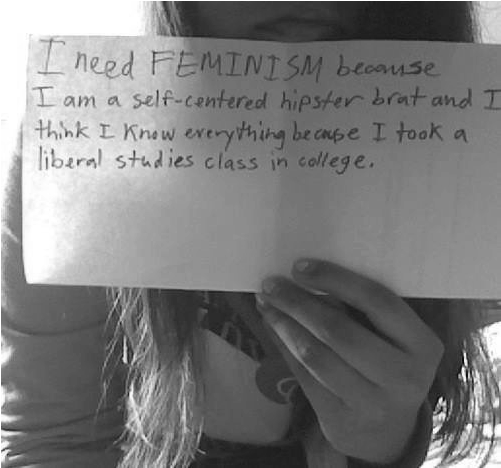 I need FEMINISM because
I am a self-centered hipster brat and I
think I know everything because I took a
liberal studies class in college.